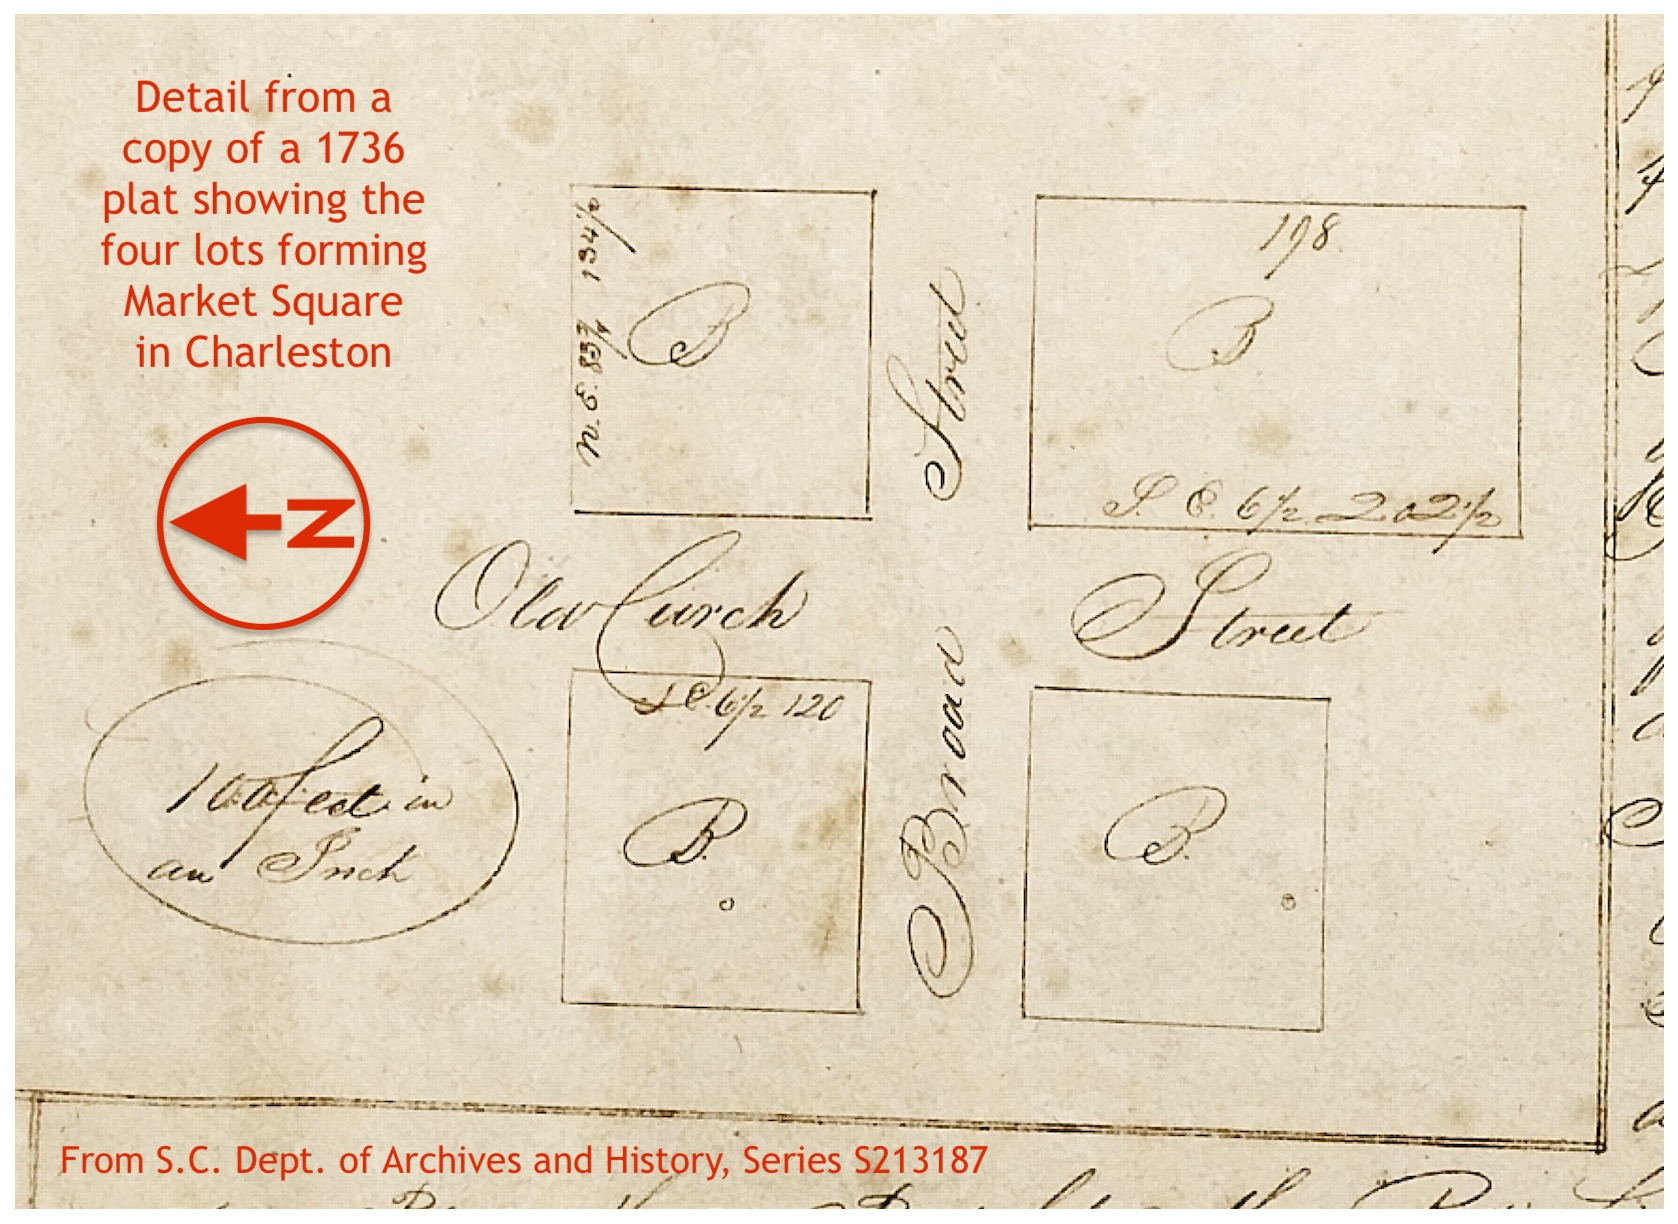 Detail from a
copy of a 1736
plat showing the
four lots forming
Market Square
in Charleston
N
N. E. 83¾ 134½
B
198
B
S. E. 6½ 202½
Street
Old Curch Street
S E. 6½ 120
B.
B.
Broad
100 feet in
an Inch
From S.C. Dept. of Archives and History, Series S213187